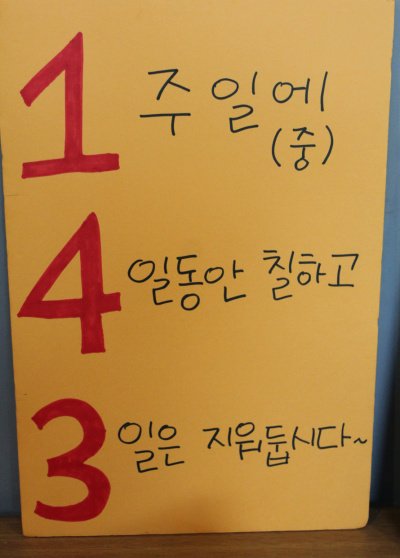 1 주일에
(중)
4 일동안 칠하고
3 일은 지워둡시다~